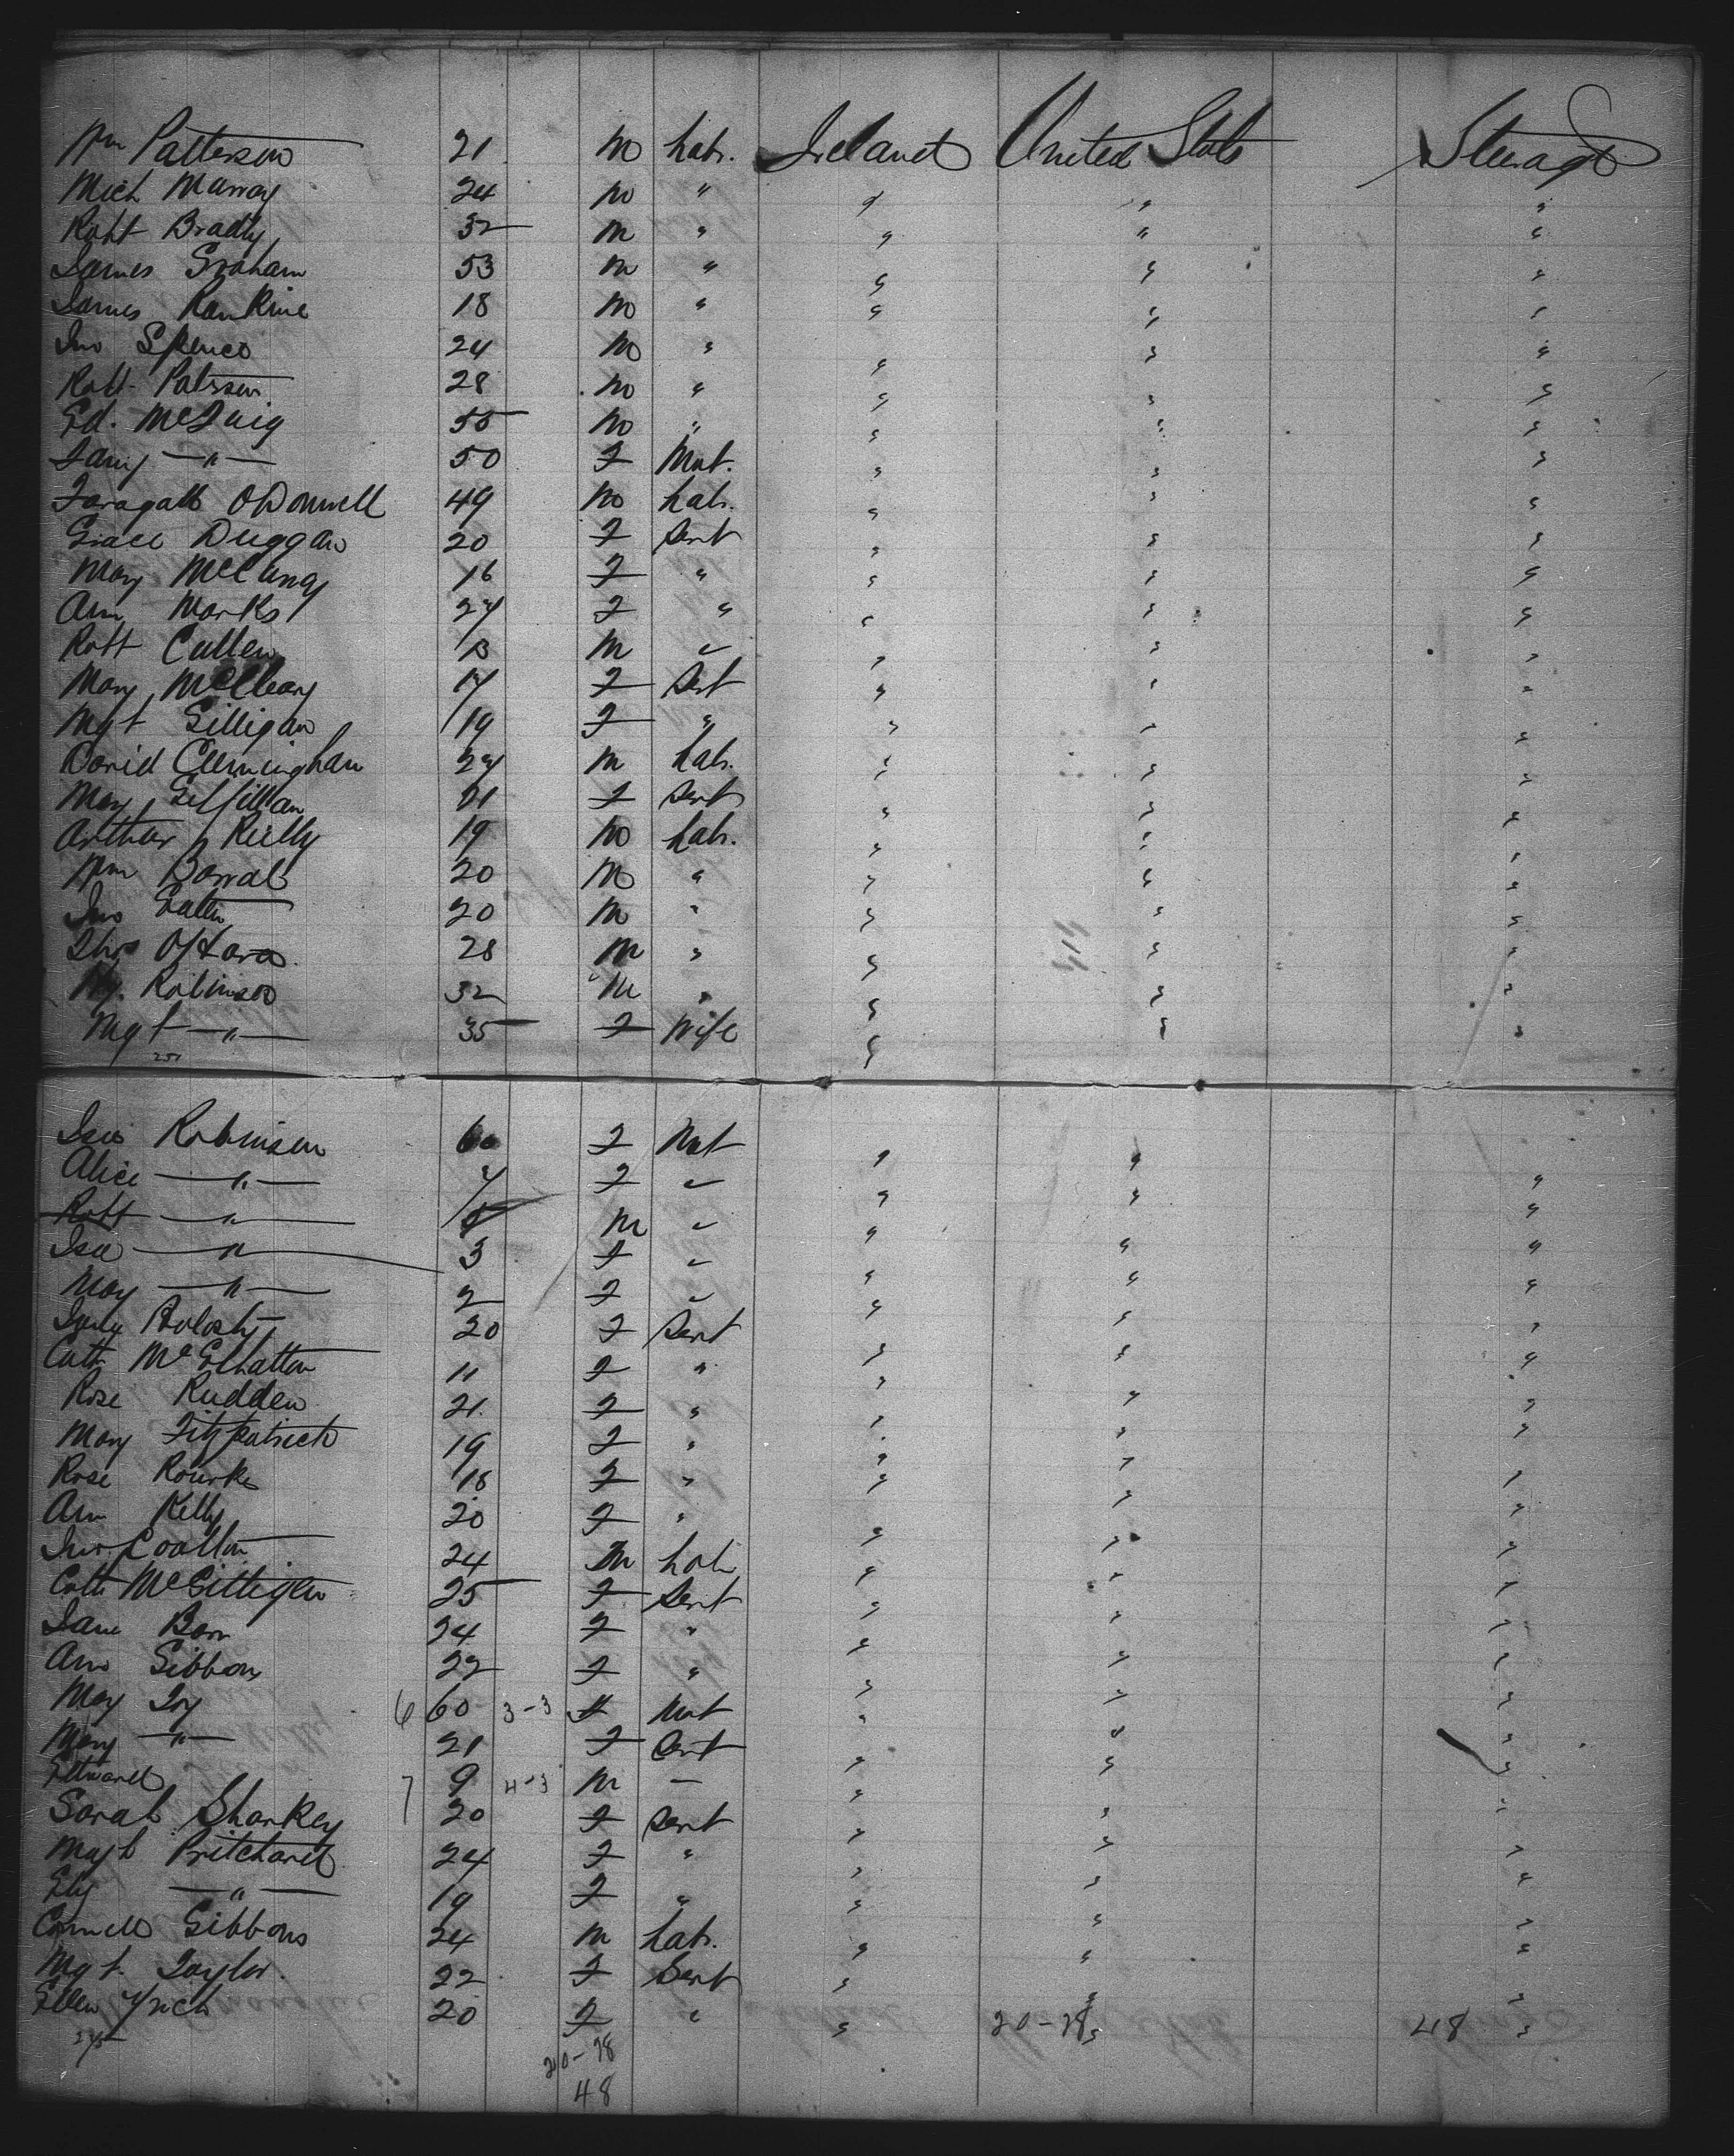 Wm Patterson 21 m Labr. Ireland United States Steerage
Mich Murray 24 m " " " "
Robt Brady 32 m " " " "
James Graham 53 m " " " "
James Rankine 18 m " " " "
Jno Spence 24 m " " " "
Robt Patisson 28 m " " " "
Ed. McQuig 55 m " " " "
—"— 50 F Mat. " " "
O'Donnell 49 m Labr. " " "
Grace Duggan 20 F Servt " " "
Mary 16 F " " " "
Ann Marks 24 F " " " "
Robt Cullen 13 m " " " "
Mary McCleary 17 F Servt " " "
Mgt Gilligan 19 F " " " "
David Cunningham 24 m Labr. " " "
Mary Gilfillan 21 F Servt " " "
Arthur Reilly 19 m Labr. " " "
Wm 20 m " " " "
Jno 20 m " " " "
O'Hara 28 m " " " "
Robinson 32 m " " " "
Mgt —"— 35 F Wife " " "
251
Isa Robinson 60 F Mat " "
Alice —"— 7 F " " " "
Robt —"— 5 m " " " "
Isa —"— 3 F " " " "
May —"— 2 F " " " "
20 F Servt " " "
Cath McElhatton 11 F " " " "
Rose Rudden 21 F " " " "
Mary Fitzpatrick 19 F " " " "
Rose Rourke 18 F " " " "
Ann Kelly 20 F " " " "
Jno. 24 m Labr " " "
Cath McGettigan 25 F Servt " " "
Jane 24 F " " " "
Ann Gibbons 22 F " " " "
May 6 60 3-3 F Mat " " "
Mary —"— 21 F Servt " " "
Edward 7 9 4-3 m — " " "
Sarah Sharkey 20 F Servt " " "
Magt Pritchard 24 F " " " "
Eliz —"— 19 F " " " "
Connell Gibbons 24 m Labr. " " "
Mgt. Taylor 22 F Servt " " "
Ellen 20 F " " 20-28 " 48 "
275
20-28
48